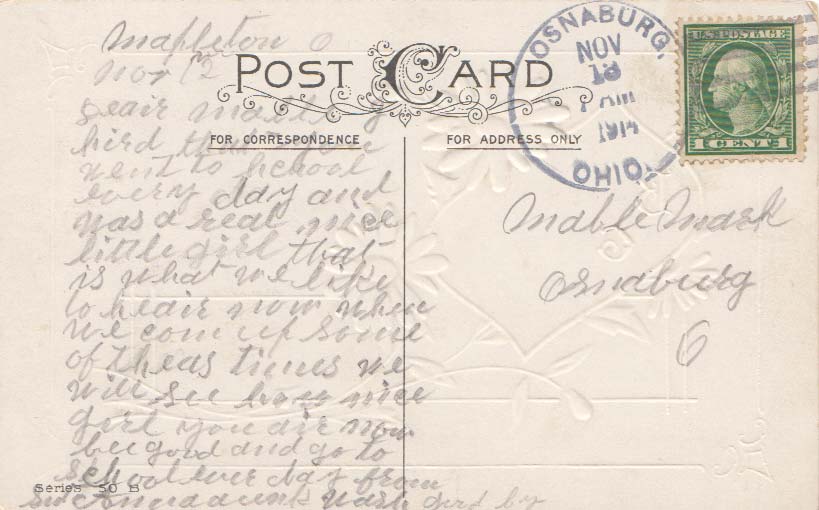 Mapleton O
Nov 12
POST CARD
FOR CORRESPONDENCE
FOR ADDRESS ONLY
OSNABURG,
NOV
13
AM
1914
OHIO.
U.S. POSTAGE
1 CENT 1
deair
hird that you
went to School
every day and
was a real nice
little girl that
is what we like
to heair now when
we com up some
of theas times we
will see how nice
girl you air now
bee good and go to
school ever day from
good by
Mable Mark
Osnaburg
O
Series 50 B